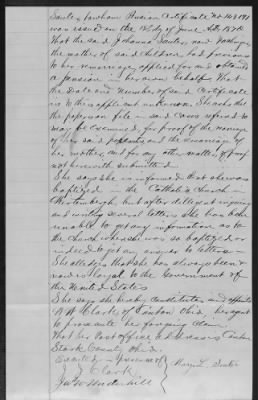 Pension Certificate No 163191
was issued on the day of June A.D. 18
That the said Johanna Souter, said mother,
the mother of said children had previous
to her remarriage applied for and obtained
a pension in her own behalf. That
the date and number of said Certificate
is to this applicant unknown. She asks that
the papers on file in said case referred to
may be examined, for proof of the marriage
of her said parents and the remarriage of
her mother, and for any other matter of proof
not herewith submitted.
She says she is informed that she was
baptized in the Catholic Church in
but after diligent inquiry
and writing several letters she has been
unable to get any information as to
the church where she was so baptized, or
indeed to get any answer to letters.
She alleges that she has always been &
now is loyal to the Government of
the United States
She says she hereby constitutes and appoints
W Clark of Canton Ohio, her agent
to prosecute her foregoing claim.
That her Post office address is Canton
Stark County Ohio.
Executed in presence of
Clark
Underhill